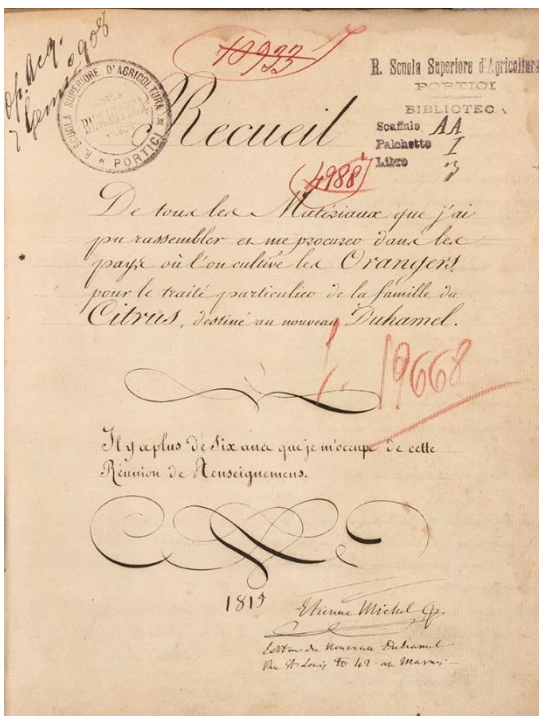 10933
R. Scuola Superiore d'Agricoltura
PORTICI
BIBLIOTECA
Scaffale AA
Palchetto I
Libro 3
R. SCUOLA SUPERIORE D'AGRICOLTURA
BIBLIOTECA
PORTICI
Recueil
4988
De tous les Matériaux que j'ai
pu rassembler et me procurer dans les
pays où l'on cultive les Orangers,
pour le traité particulier de la famille du
Citrus, destiné au nouveau Duhamel.
19668
Il y a plus de Six ans que je m'occupe de cette
Réunion de Renseignemens.
1815
Etienne Michel
Editeur du Nouveau Duhamel
Rue St Louis No 42 au Marais